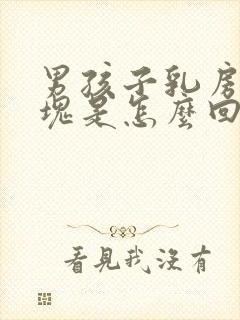 男孩子乳房
塊是怎麼回
看見我沒有